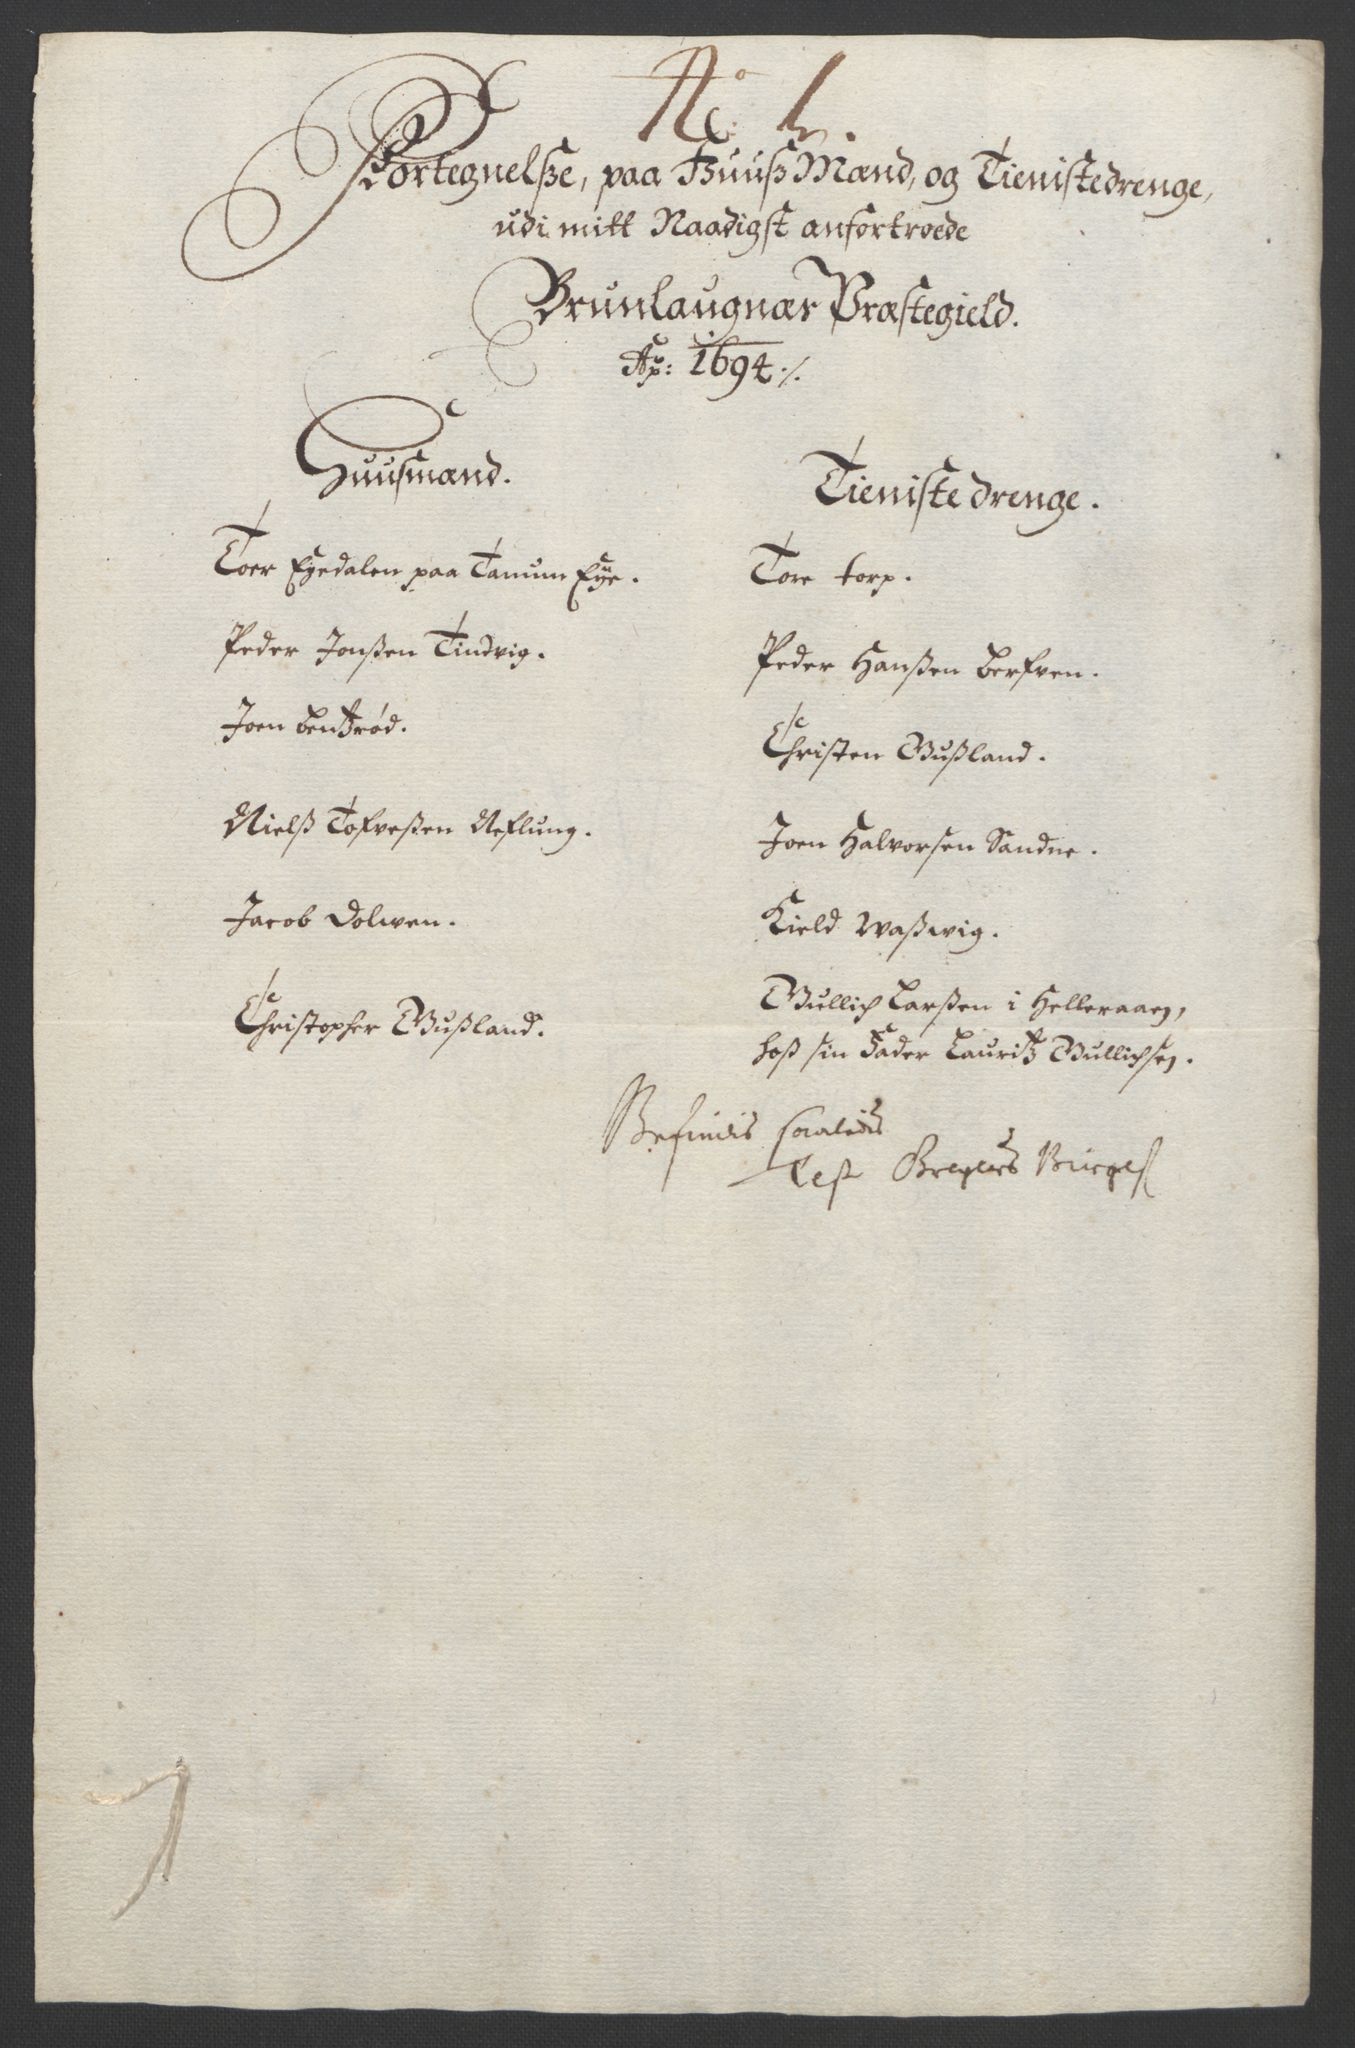 Fortegnelsße, paa Huuß Mænd, og Tienistedrenge,
udi mitt Naadigst anfortroede
Brunlaugnæs Præstegield.
Ao: 1694 ./.
Huusmænd.
Toer Eyedalen paa Tanum Eye.
Peder Jonßen Tindvig.
Joen Bentzrød.
Nielß Tofveßen Neflung.
Jacob Dolwen.
Christopher Gußland.
Tienistedrenge.
Tore torp.
Peder Hanßen Berfven.
Christen Gußland.
Joen Halvorsen Sandne.
Kield Waßwig.
Gullich Larßen i Helleraaen,
hoß sin Fader Lauritz Gullichsen.
Befindis saaledis
Test